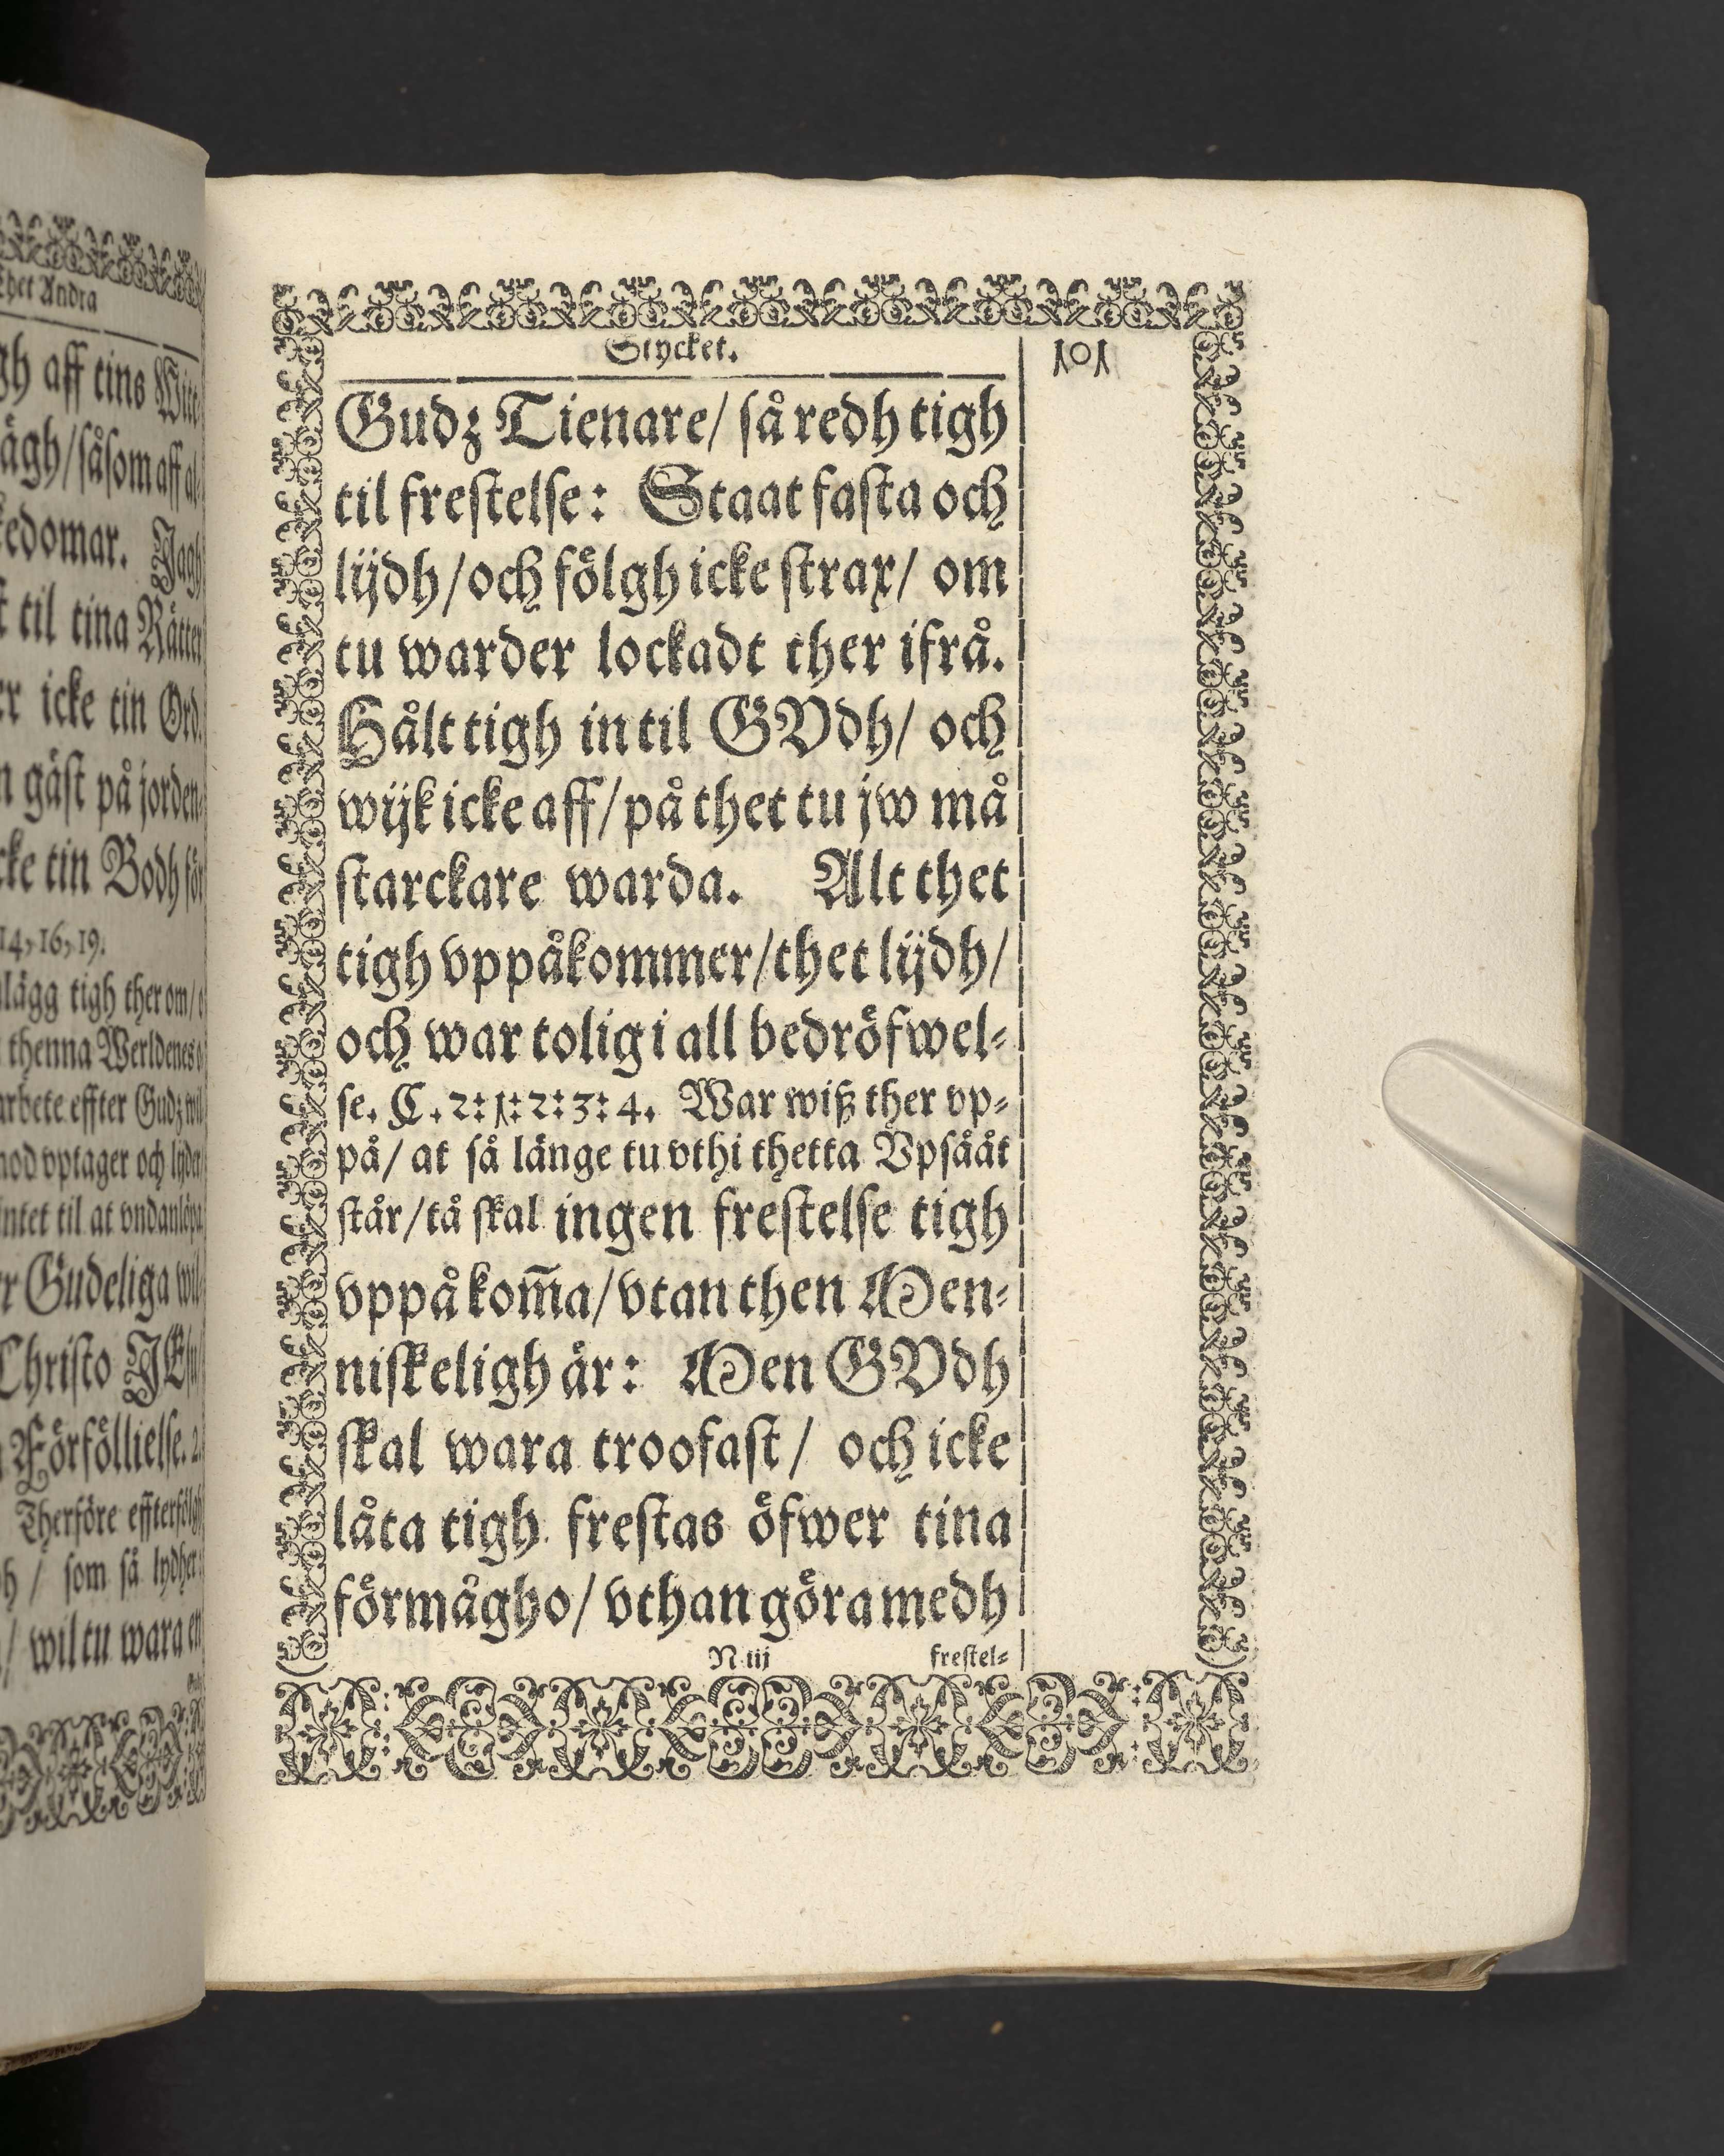 Thet Andra
aff tins
såsom aff
til tina Rätter
icke tin Ord.
gäst på jorden
tin Bodh för
14, 16, 19.
lägg tigh ther om/
thenna Werldenes
effter Gudz wil
vptager och lyder
til at vndanlöpa
Gudeliga wil-
Christo JEsu
Förföllielse. 2.
Therföre effterfölgh
/ som så lydher:
/ wil tu wara en
Stycket. 101
Gudz Tienare/ så redh tigh
til frestelse: Staat fasta och
lijdh/ och fölgh icke strax/ om
tu warder lockadt ther ifrå.
Hålt tigh in til GVdh/ och
wijk icke aff/ på thet tu jw må
starckare warda. Alt thet
tigh vppåkommer/ thet lijdh/
och war tolig i all bedröfwel-
se. C. 2: 1: 2: 3: 4. War wiß ther vp-
på/ at så länge tu vthi thetta Vpsååt
står/ tå skal ingen frestelse tigh
vppå kom̅a/ vtan then Men-
niskeligh är: Men GVdh
skal wara troofast/ och icke
låta tigh frestas öfwer tina
förmågho/ vthan göra medh
N iij frestel-